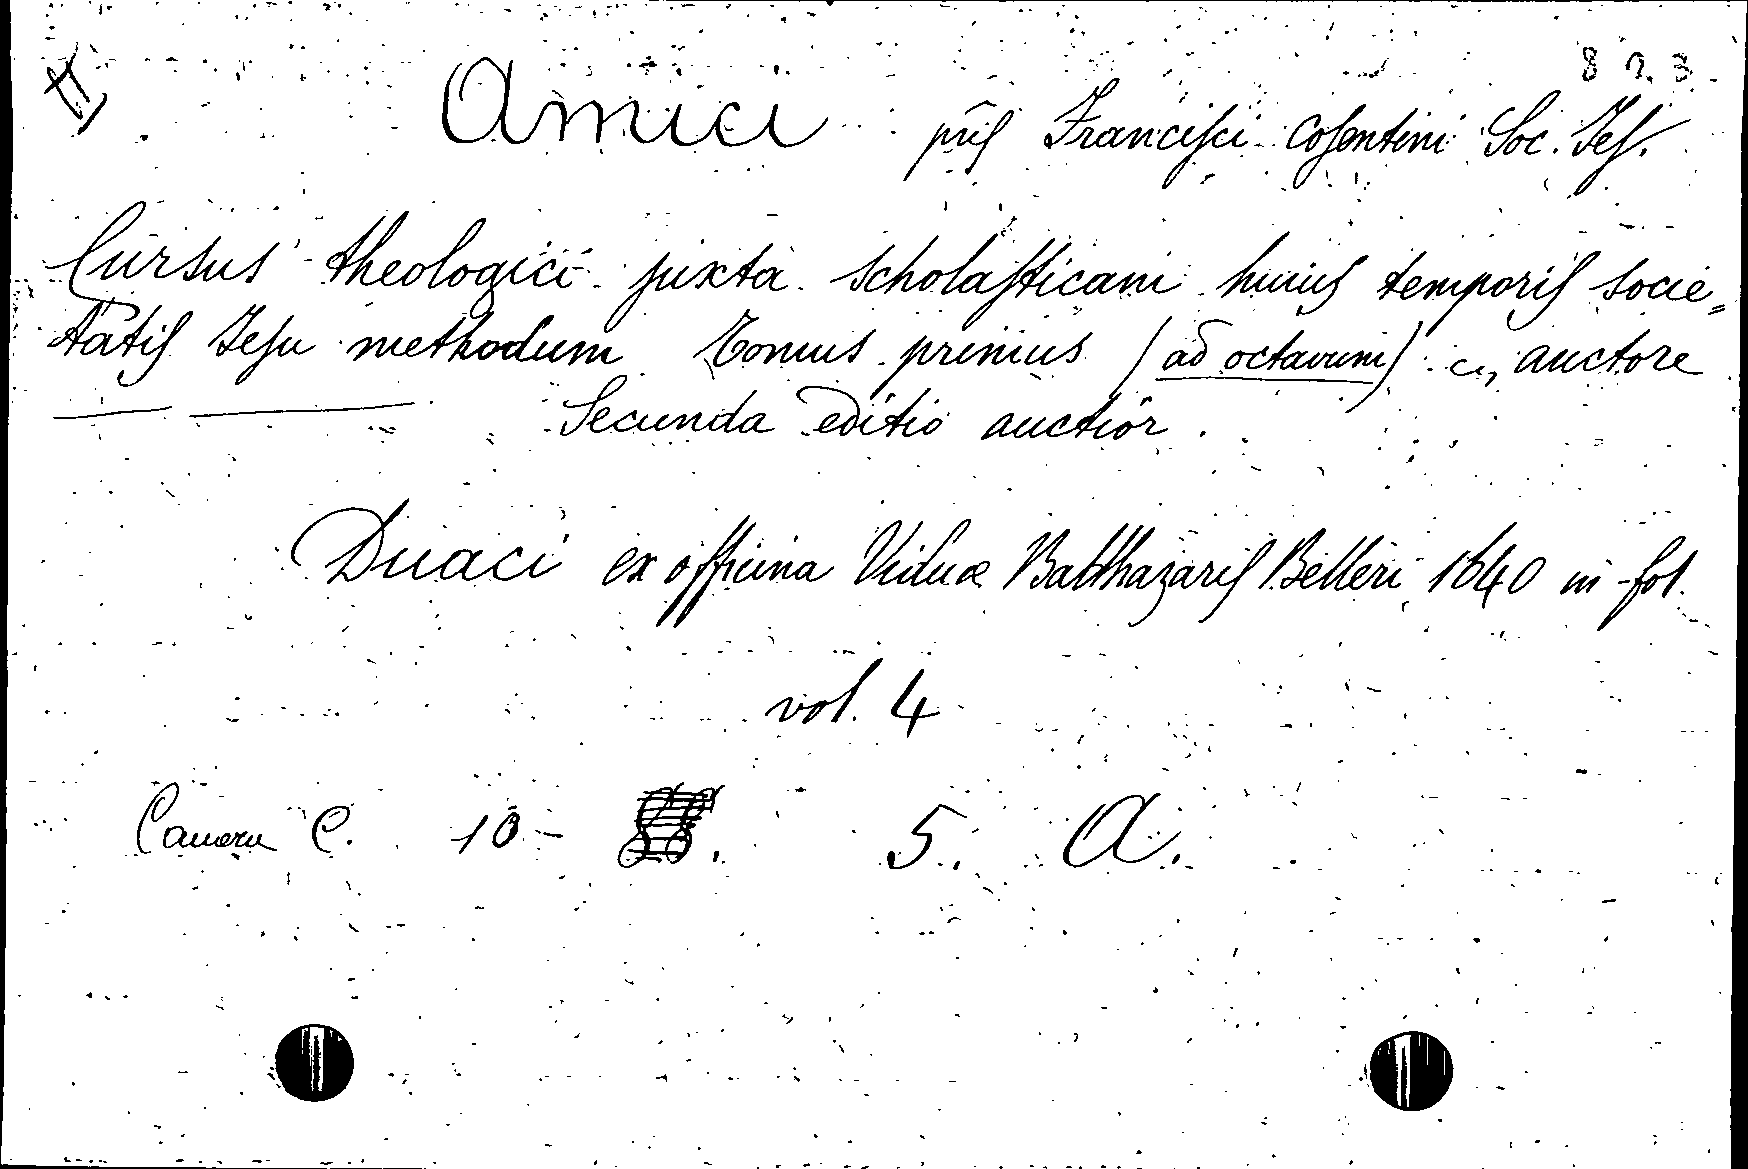 8 2. 3.
Amici pris Francisci Cosentini Soc. Jes.
Cursus theologici juxta scholasticam huius temporis socie=
tatis Jesu methodum Tomus primus (ad octavum) auctore
Secunda editio auctior.
Duaci ex officina Viduæ Balthazaris Belleri 1640 in-fol.
vol. 4
Camera C. 10- 5. A.